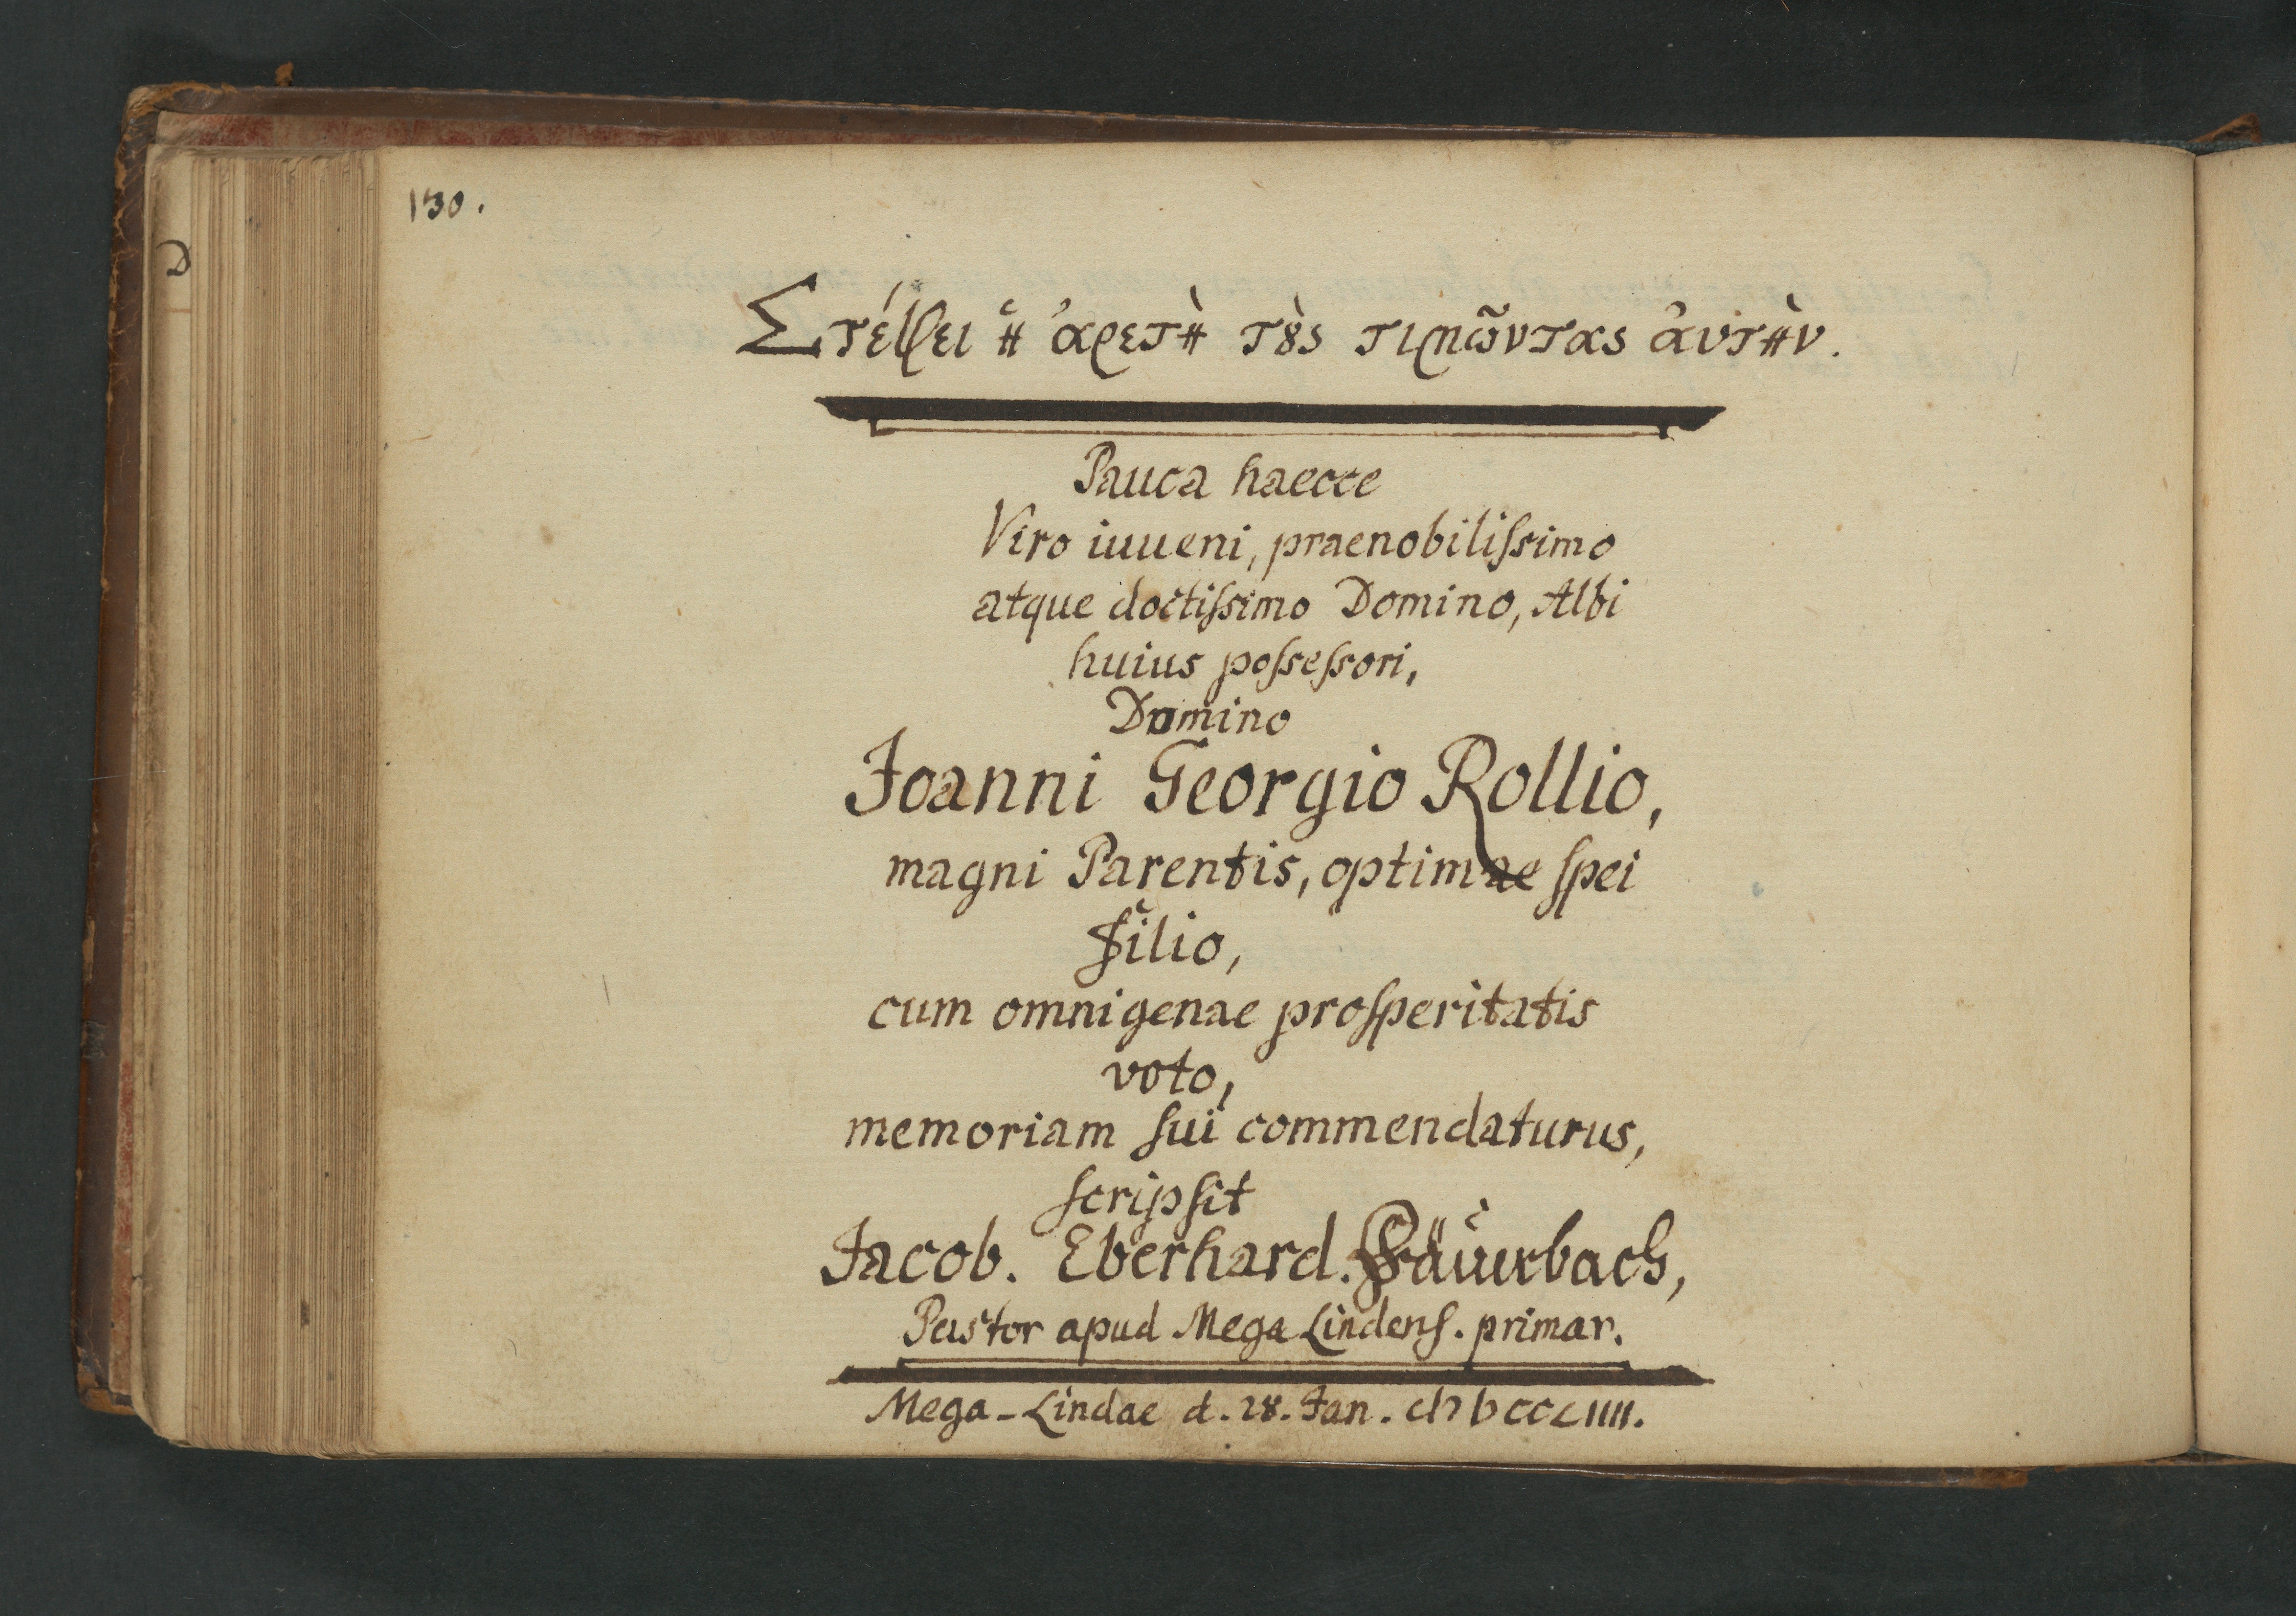 130.
D
Στέφει ἡ ἀρετὴ τȣ̀ς τιμῶντας ἀυτὴν.
Pauca haecce
Viro iuueni, praenobiliſsimo
atque doctiſsimo Domino, Albi
huius poſseſsori,
Domino
Joanni Georgio Rollio,
magni Parentis, optimae ſpei
filio,
cum omnigenae proſperitatis
voto,
memoriam ſui commendaturus,
ſcripſit
Jacob. Eberhard. Fäuerbach,
Pastor apud Mega Lindenſ. primar.
Mega-Lindae d. 28. Jan. cIɔ Iɔ CCLIIII.